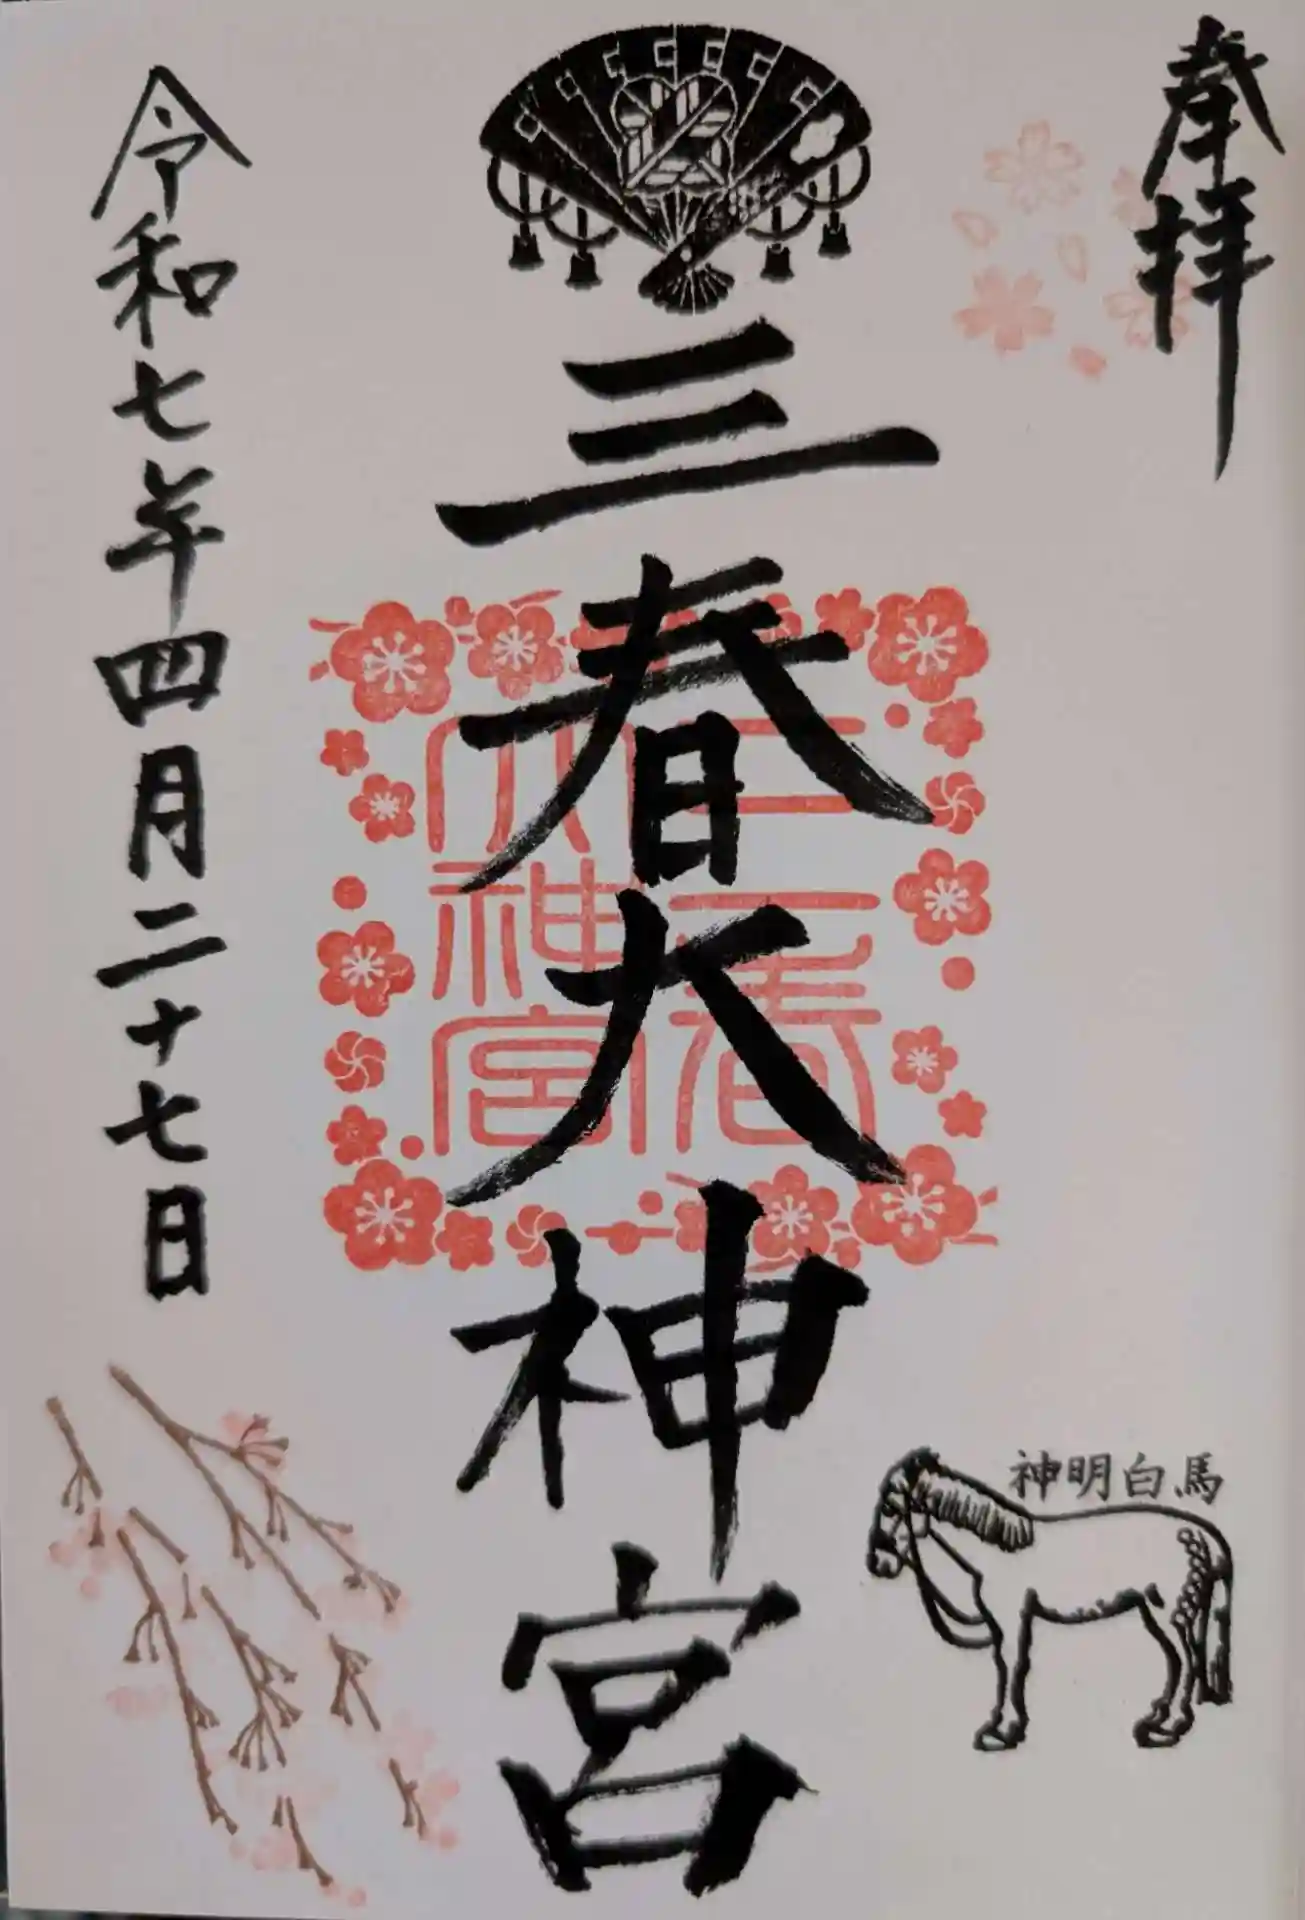 奉拝
三春大神宮
三春
大神宮
神明白馬
令和七年四月二十七日